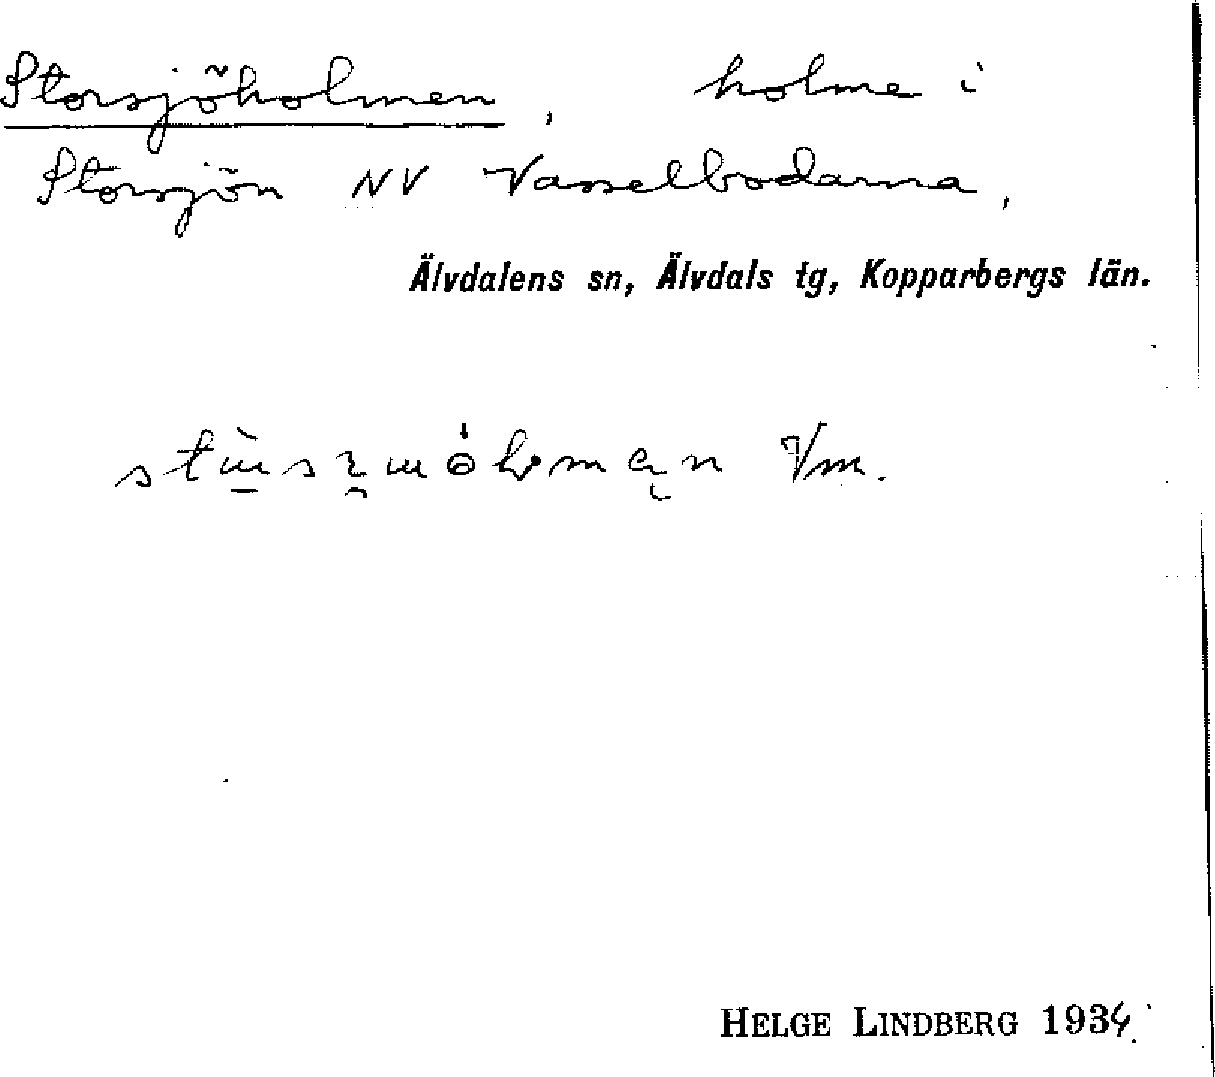 Storsjöholmen, holme i
Storsjön NV Vasselbodarna,
Älvdalens sn, Älvdals tg, Kopparbergs län.
HELGE LINDBERG 1934.